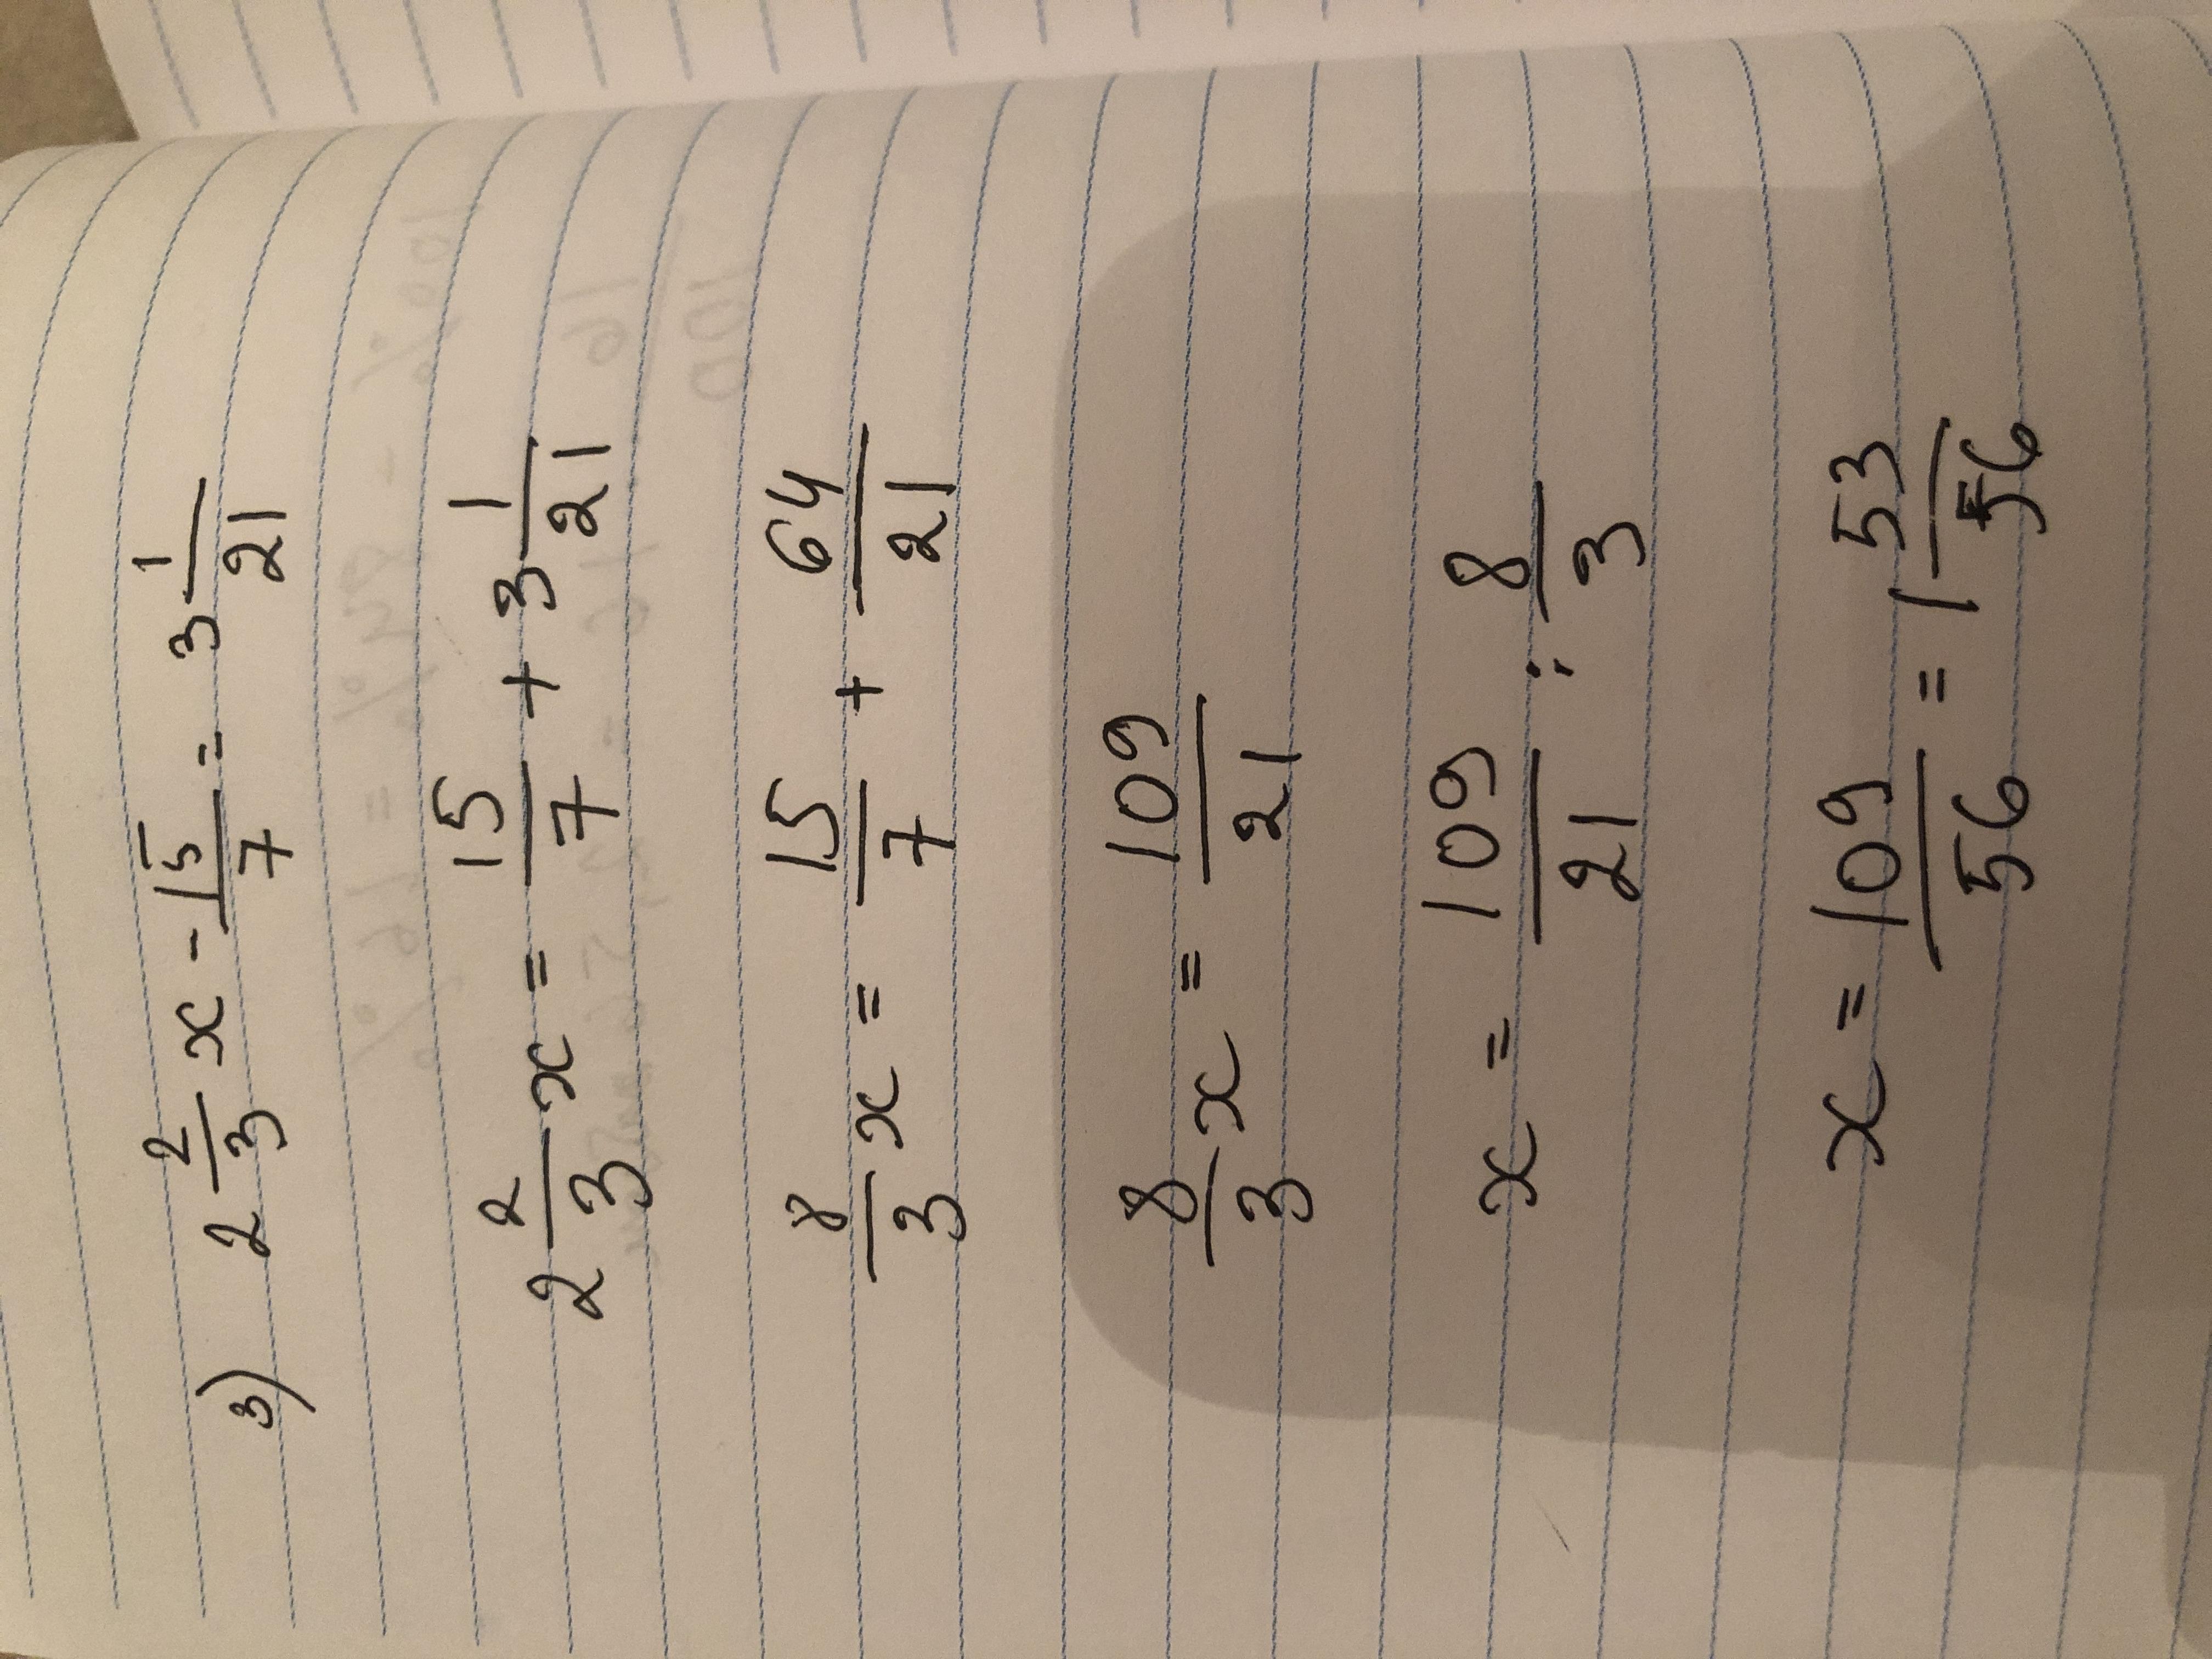 3) 2 2/3 x - 15/7 = 3 1/21
2 2/3 x = 15/7 + 3 1/21
8/3 x = 15/7 + 64/21
8/3 x = 109/21
x = 109/21 : 8/3
x = 109/56 = 1 53/56